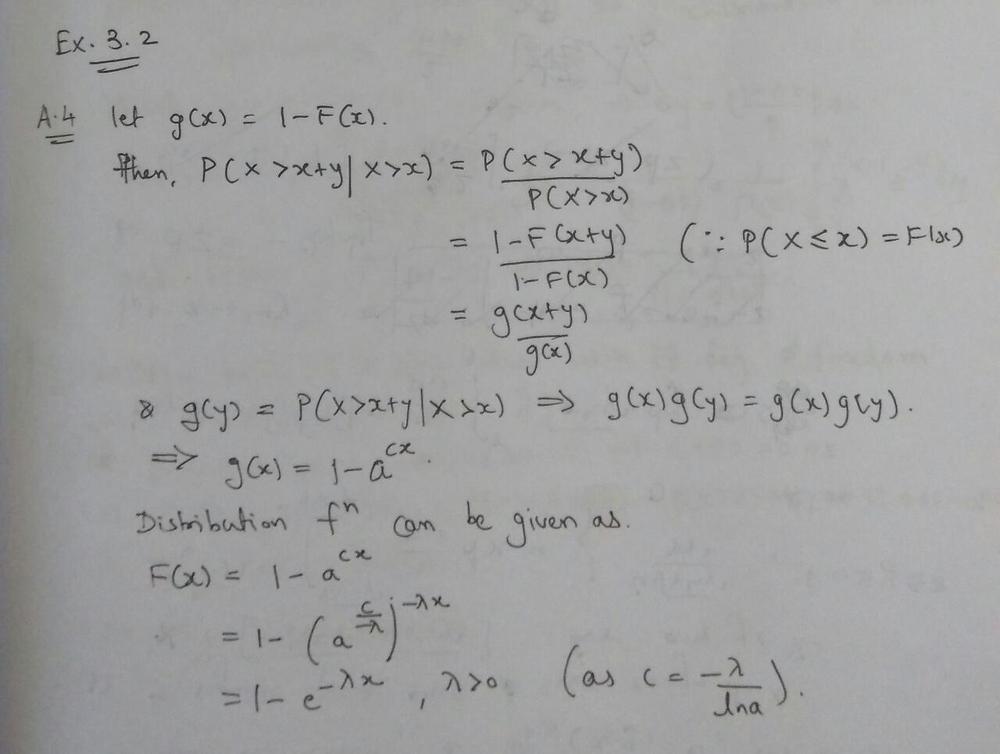 Ex. 3.2
A.4 let g(x) = 1-F(x).
then, P(X>x+y|X>x) = P(X>x+y) / P(X>x)
= 1-F(x+y) / 1-F(x) (∵ P(X≤x) = F(x)
= g(x+y) / g(x)
& g(y) = P(X>x+y|X>x) ⇒ g(x)g(y) = g(x)g(y).
⇒ g(x) = 1-a^{cx}.
Distribution fⁿ can be given as.
F(x) = 1-a^{cx}
= 1-(a^{c/-λ})^{-λx}
= 1-e^{-λx}, λ>0 (as c = -λ/lna).